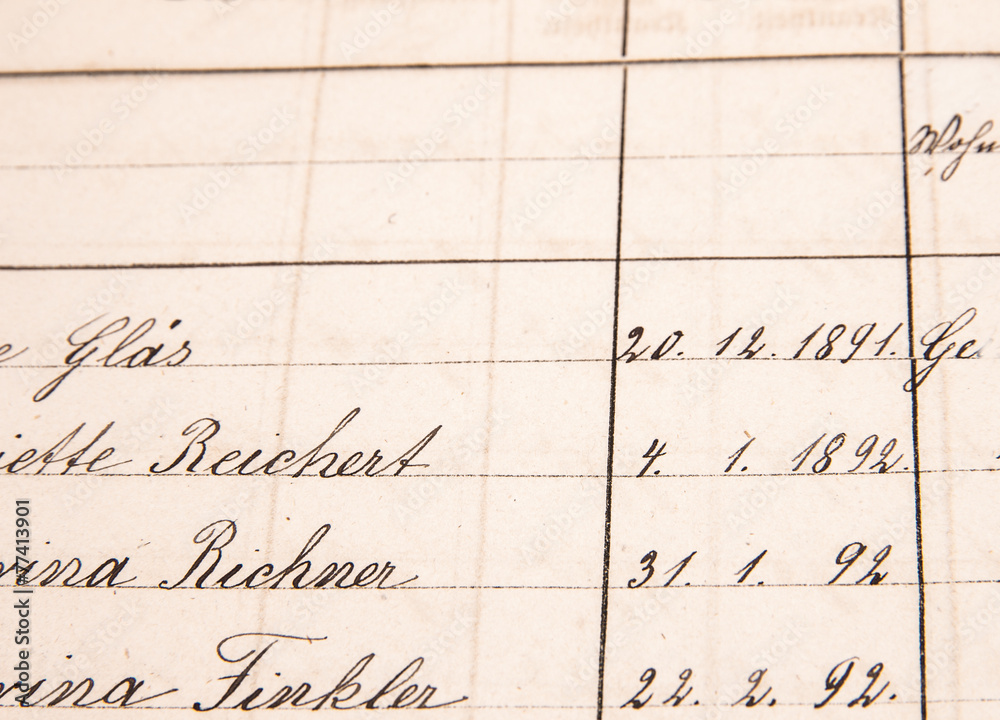 Krankheit Krankheit
Wohn
e Gläs 20. 12. 1891. Ge
iette Reichert 4. 1. 1892.
rina Richner 31. 1. 92
rina Finkler 22. 2. 92.
Adobe Stock | #77413901